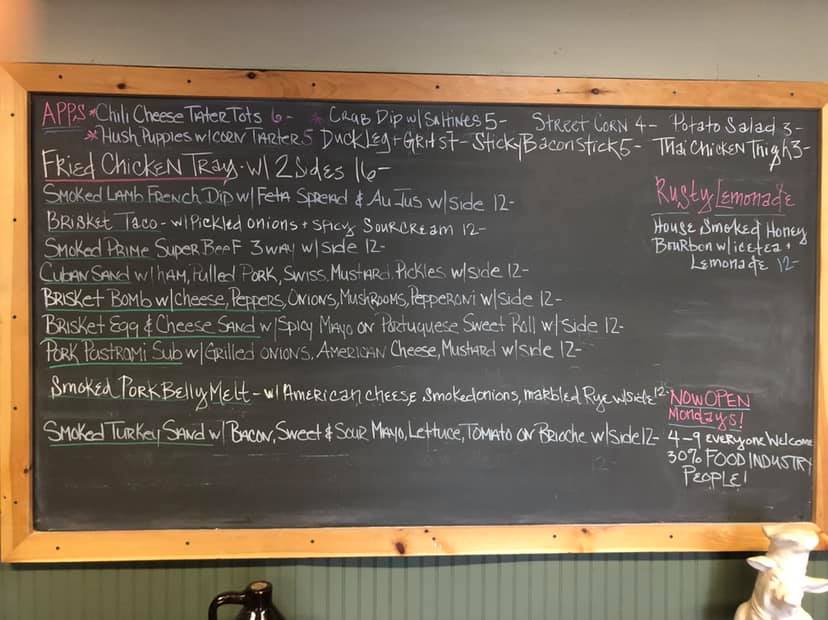 APPS *Chili Cheese Tater Tots 6- * Crab Dip w/Saltines 5- Street Corn 4- Potato Salad 3-
*Hush Puppies w/corn Tarter 5 Duck Leg + Grits 7- Sticky Bacon Stick 5- Thai Chicken Thigh 3-
Fried Chicken Tray - w/ 2 Sides 16-
Smoked Lamb French Dip w/ Feta Spread & Au Jus w/ side 12-
Brisket Taco - w/Pickled onions + spicy sour cream 12-
Smoked Prime Super Beef 3 way w/ side 12-
Cuban Sand w/ ham, Pulled Pork, Swiss, Mustard, Pickles w/side 12-
Brisket Bomb w/cheese, Peppers, Onions, Mushrooms, Pepperoni w/side 12-
Brisket Egg & Cheese Sand w/ Spicy Mayo on Portuguese Sweet Roll w/ side 12-
Pork Pastromi Sub w/ Grilled onions, American Cheese, Mustard w/side 12-
Smoked Pork Belly Melt - w/ American cheese, smoked onions, marbled Rye w/side 12-
Smoked Turkey Sand w/ Bacon, Sweet & Sour Mayo, Lettuce, Tomato on Brioche w/side 12-
12-
Rusty Lemonade
House Smoked Honey
Bourbon w/ice tea +
Lemonade 12-
NOW OPEN
Mondays!
4-9 everyone Welcome
30% FOOD INDUSTRY
PEOPLE!